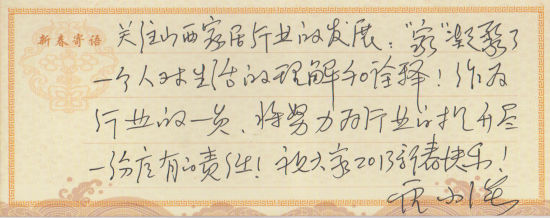 新春寄语
关注山西家居行业的发展："家"凝聚了
一个人对生活的理解和诠释！作为
行业的一员、将努力为行业的提升尽
一份应有的责任！祝大家2013新春快乐！